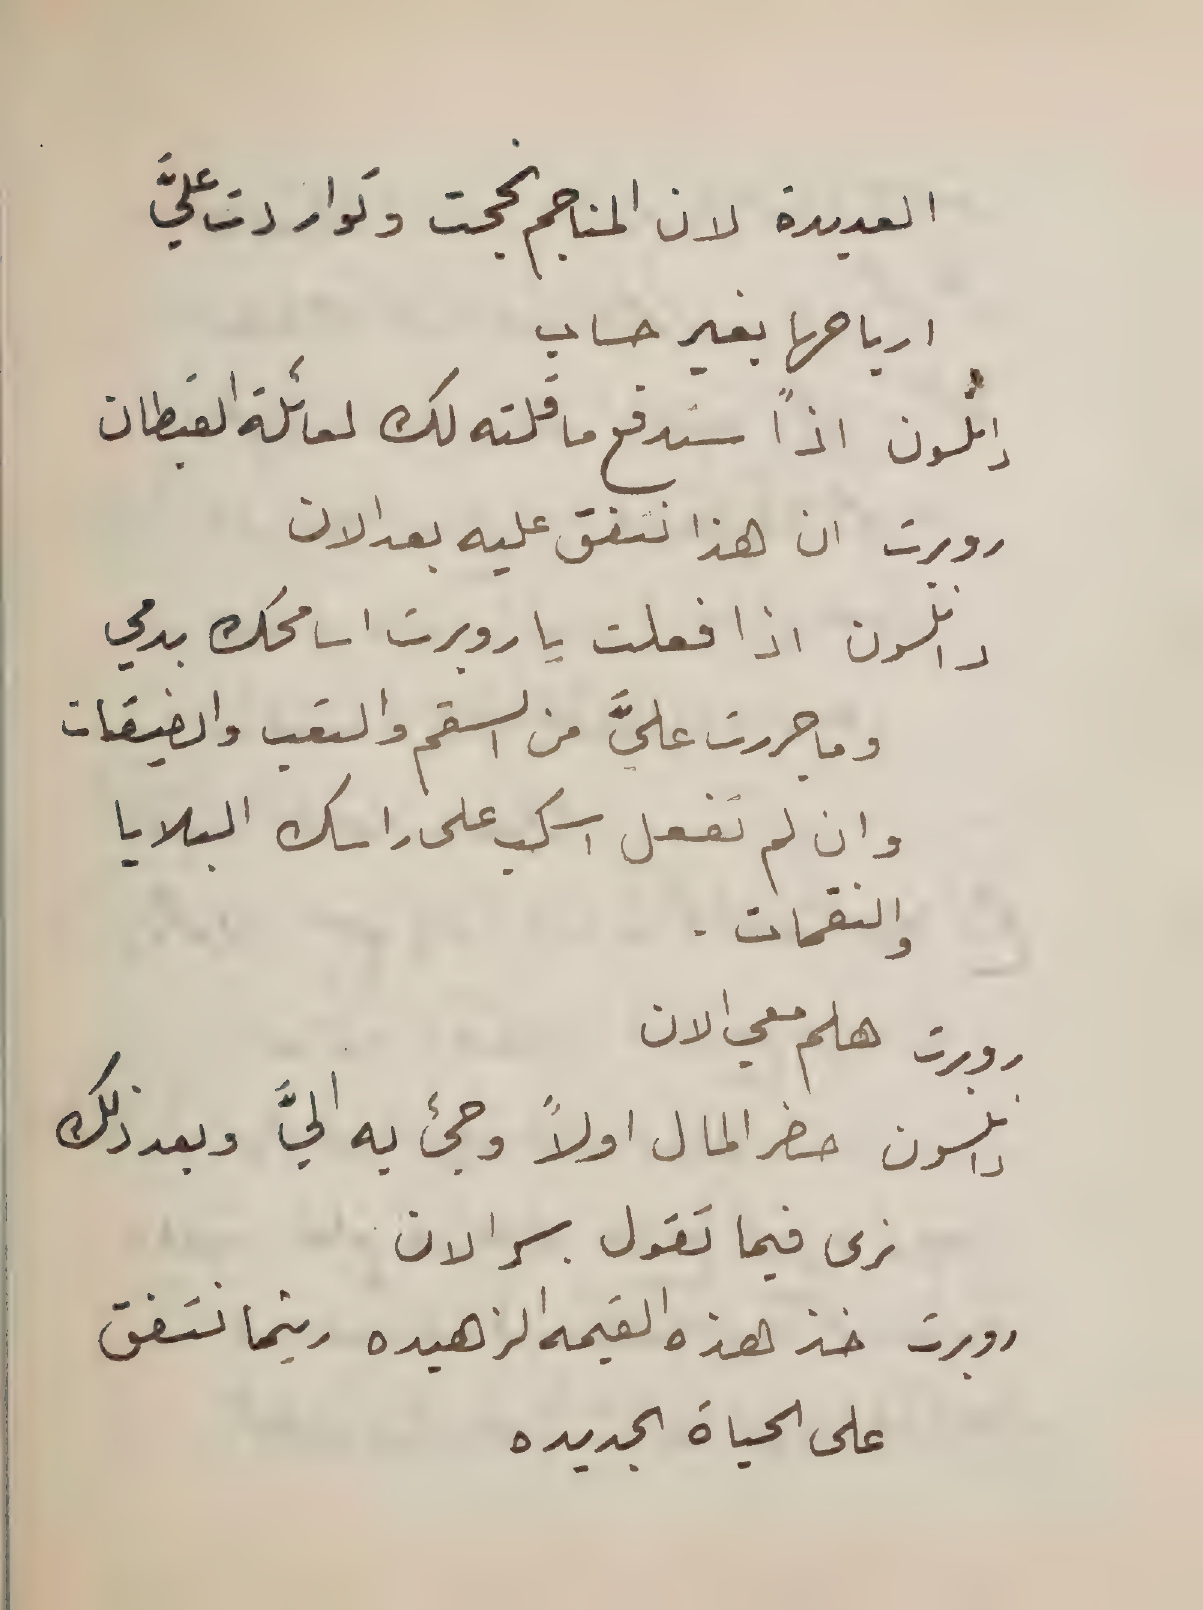 العديدة لان المناجم نجحت وتواردت عليَّ
ارباحها بغير حساب
دانلسون اذاً ستدفع ما قلته لك لعائلة القبطان
روبرت ان هذا نتفق عليه بعد الان
دانلسون اذا فعلت يا روبرت اسامحك بدمي
وما جررت عليَّ من السقم والتعب والضيقات
وان لم تفعل اسكب على راسك البلايا
والنقمات .
روبرت هلم معي الان
دانلسون حضر المال اولاً وجئ به اليَّ وبعد ذلك
نرى فيما تقول سر الان
روبرت خذ هذه القيمه الزهيده ريثما نتفق
على الحياة الجديده